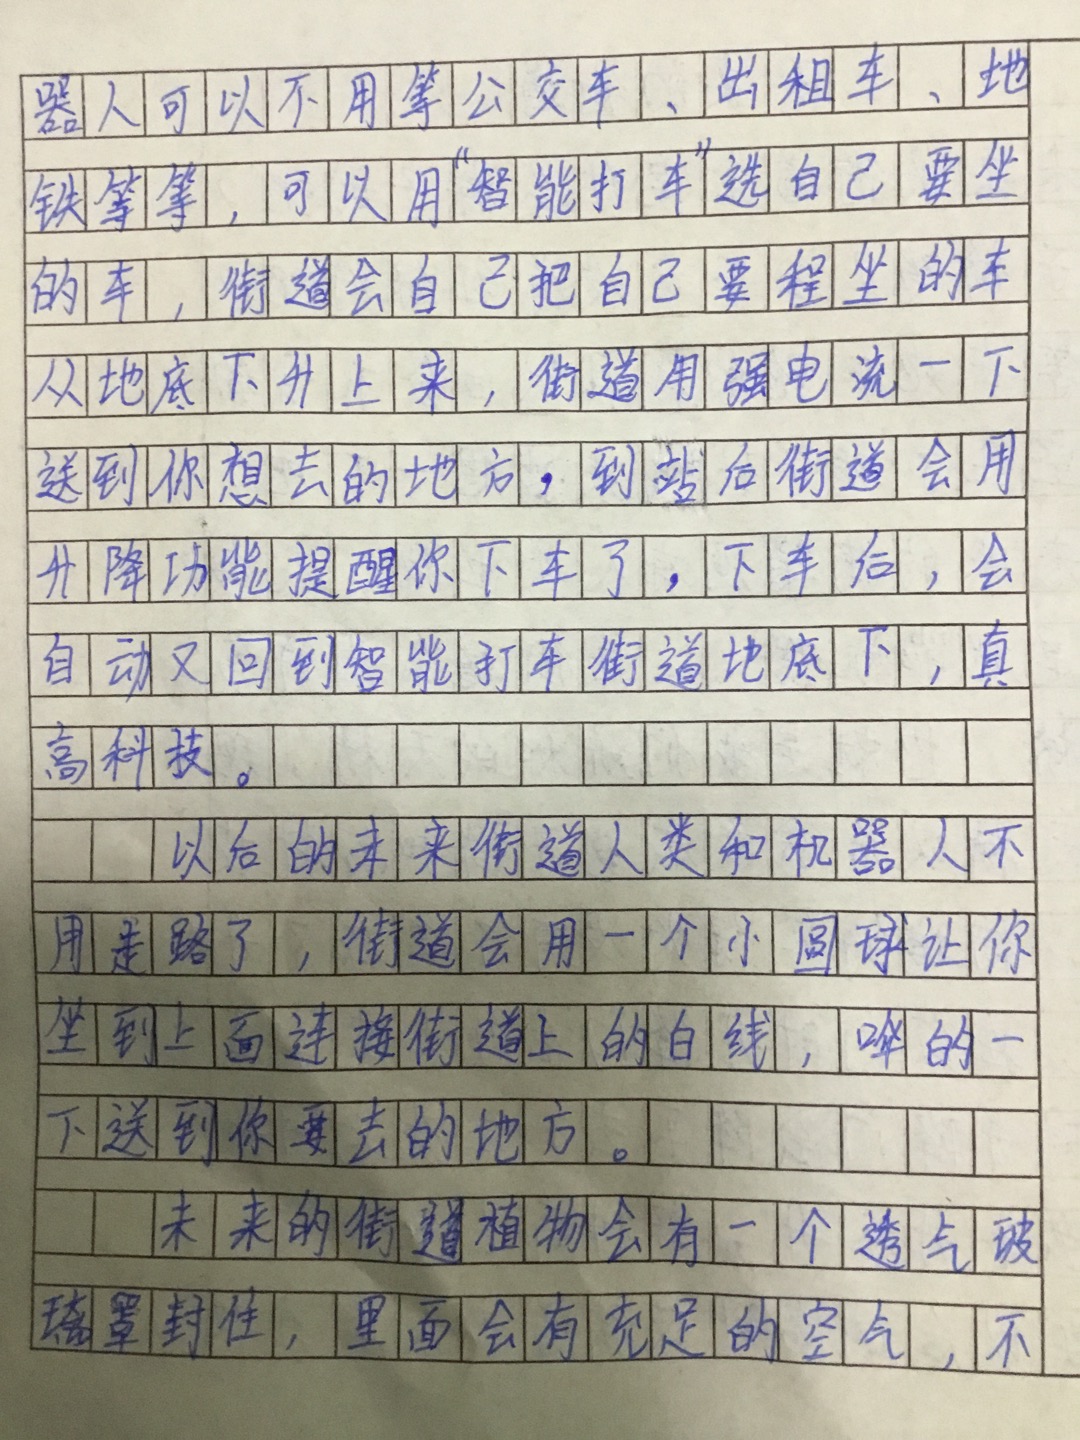 器人可以不用等公交车、出租车、地
铁等等,可以用“智能打车”选自己要坐
的车,街道会自己把自己要程坐的车
从地底下升上来,街道用强电流一下
送到你想去的地方,到站后街道会用
升降功能提醒你下车了,下车后,会
自动又回到智能打车街道地底下,真
高科技。
以后的未来街道人类和机器人不
用走路了,街道会用一个小圆球让你
坐到上面连接街道上的白线,的一
下送到你要去的地方。
未来的街道植物会有一个透气玻
璃罩封住,里面会有充足的空气,不